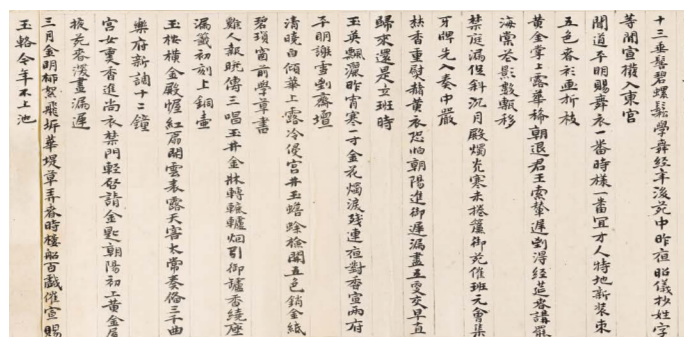 十三垂髫碧螺鬆學舞經年後苑中昨夜昭儀抄姓字
等閒宣擢入東宮
聞道平明賜舞衣一番時樣一番宜才人特地新裝束
五色春衫画折枝
黄金掌上露華稀朝退君王索輦遲到得經筵春講罷
海棠花影數甎移
禁庭漏促斜沉月殿燭光寒未捲簾御苑催班元會集
牙牌先入奏中嚴
香重熨赭黄衣恐怕朝陽進御遲漏盡五更交早直
歸來還是立班時
玉英飄灑昨宵寒一寸金花燭淚殘連夜對香宣兩府
平明謝雪到齋壇
清曉自傾華上露冷侵宮井玉蟾蜍擘開五色銷金紙
碧瑣窗前學草書
雞人報曉傳三唱玉井金牀轉轆轤烟引御罏香繞座
漏籤初刻上銅壺
玉按橫金殿幄紅扇開雲表露天容太常奏備三千曲
樂府新調十二鐘
宮女熏香進尚衣禁門輕啓請金匙朝陽初上黄金屋
掖苑春深畫漏遲
三月金明柳絮飛岸華堤草弄春時樓船百戲催宣賜
玉輅今年不上池